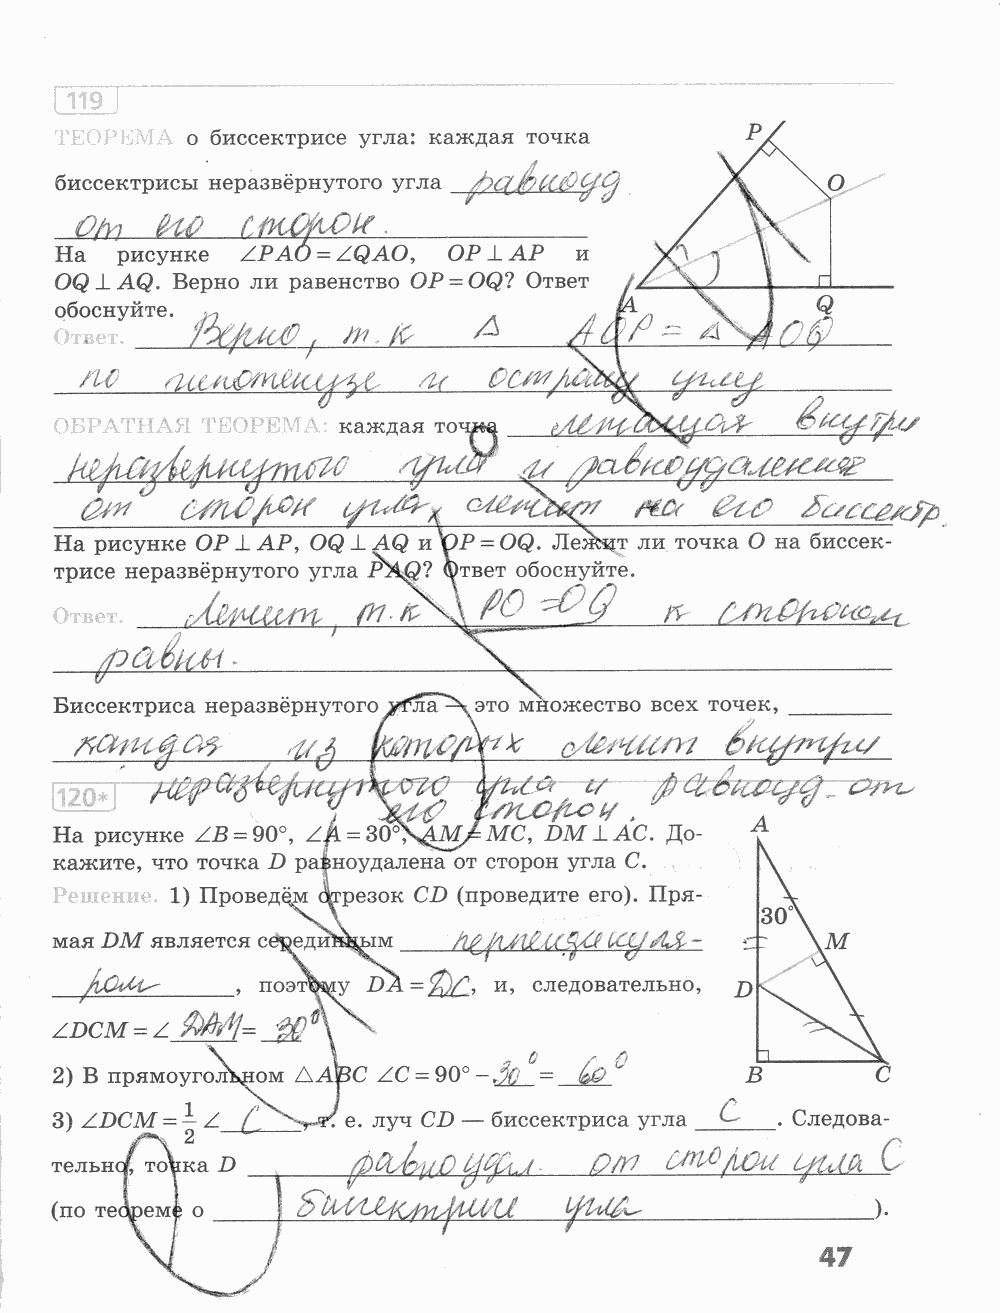 119
ТЕОРЕМА о биссектрисе угла: каждая точка
биссектрисы неразвёрнутого угла равноуд
от его сторон.
На рисунке ∠PAO = ∠QAO, OP ⊥ AP и
OQ ⊥ AQ. Верно ли равенство OP = OQ? Ответ
обоснуйте.
P
O
A
Q
Ответ. Верно, т.к △ AOP = △ AOQ
по гипотенузе и острому углу
ОБРАТНАЯ ТЕОРЕМА: каждая точка лежащая внутри
неразвернутого угла и равноудаленная
от сторон угла, лежит на его биссектр.
На рисунке OP ⊥ AP, OQ ⊥ AQ и OP = OQ. Лежит ли точка O на биссек-
трисе неразвёрнутого угла PAQ? Ответ обоснуйте.
Ответ. Лежит, т.к PO = OQ к сторонам
равны.
Биссектриса неразвёрнутого угла — это множество всех точек,
каждая из которых лежит внутри
неразвернутого угла и равноуд. от
его сторон.
120*
На рисунке ∠B = 90°, ∠A = 30°, AM = MC, DM ⊥ AC. До-
кажите, что точка D равноудалена от сторон угла C.
Решение. 1) Проведём отрезок CD (проведите его). Пря-
мая DM является серединным перпендикуля-
ром, поэтому DA = DC, и, следовательно,
∠DCM = ∠ DAM = 30°
2) В прямоугольном △ABC ∠C = 90° – 30° = 60°
3) ∠DCM = 1/2 ∠ C, т. е. луч CD — биссектриса угла C. Следова-
тельно, точка D равноудал. от сторон угла C
(по теореме о биссектрисе угла).
A
30°
M
D
B
C
47